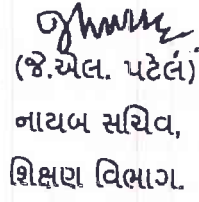 (જે.એલ. પટેલ)
નાયબ સચિવ,
શિક્ષણ વિભાગ.